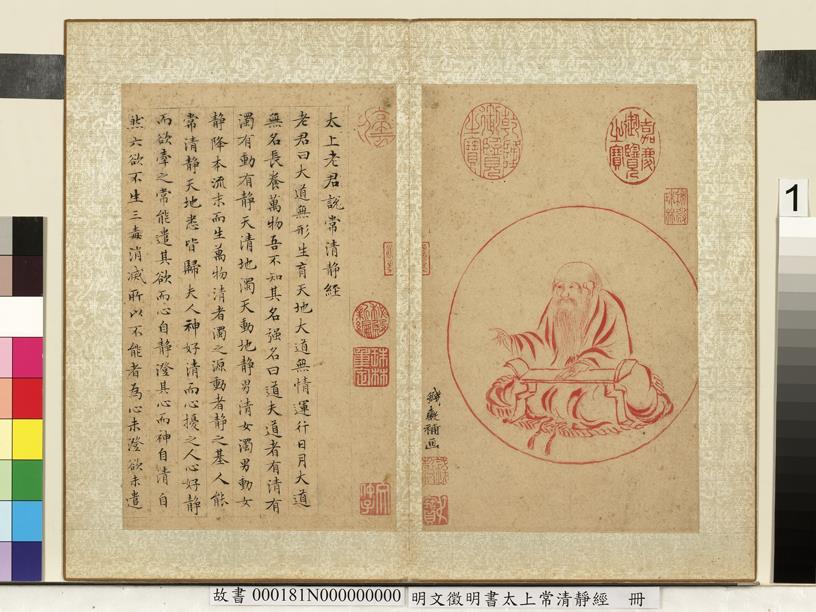 嘉慶御覽之寶
乾隆御覽之寶
錢穀補畫
太上老君說常清靜經
老君曰大道無形生育天地大道無情運行日月大道
無名長養萬物吾不知其名強名曰道夫道者有清有
濁有動有靜天清地濁天動地靜男清女濁男動女
靜降本流末而生萬物清者濁之源動者靜之基人能
常清靜天地悉皆歸夫人神好清而心擾之人心好靜
而欲牽之常能遣其欲而心自靜澄其心而神自清自
然六欲不生三毒消滅所以不能者為心未澄欲未遣
珠林重定
1
故書 000181N000000000 明文徵明書太上常清靜經 冊